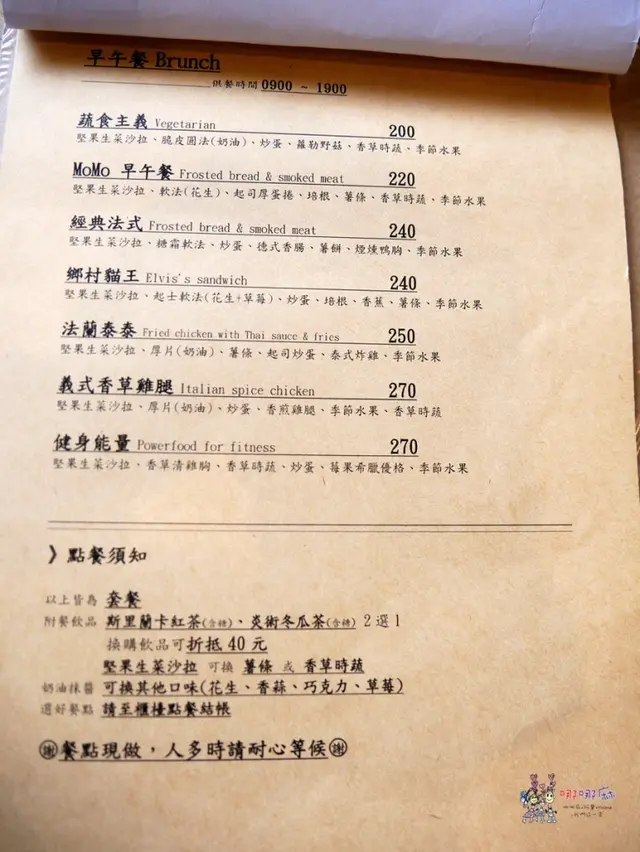 早午餐 Brunch
供餐時間 0900 ~ 1900
蔬食主義 Vegetarian 200
堅果生菜沙拉、脆皮圓法(奶油)、炒蛋、羅勒野菇、香草時蔬、季節水果
MoMo 早午餐 Frosted bread & smoked meat 220
堅果生菜沙拉、軟法(花生)、起司厚蛋捲、培根、薯條、香草時蔬、季節水果
經典法式 Frosted bread & smoked meat 240
堅果生菜沙拉、糖霜軟法、炒蛋、德式香腸、薯餅、煙燻鴨胸、季節水果
鄉村貓王 Elvis's sandwich 240
堅果生菜沙拉、起士軟法(花生+草莓)、炒蛋、培根、香蕉、薯條、季節水果
法蘭泰泰 Fried chicken with Thai sauce & fries 250
堅果生菜沙拉、厚片(奶油)、薯條、起司炒蛋、泰式炸雞、季節水果
義式香草雞腿 Italian spice chicken 270
堅果生菜沙拉、厚片(奶油)、炒蛋、香煎雞腿、季節水果、香草時蔬
健身能量 Powerfood for fitness 270
堅果生菜沙拉、香草清雞胸、香草時蔬、炒蛋、莓果希臘優格、季節水果
》點餐須知
以上皆為 套餐
附餐飲品 斯里蘭卡紅茶(含糖)、炎術冬瓜茶(含糖) 2選1
換購飲品可折抵 40 元
堅果生菜沙拉 可換 薯條 或 香草時蔬
奶油抹醬 可換其他口味(花生、香蒜、巧克力、草莓)
選好餐點 請至櫃檯點餐結帳
謝餐點現做，人多時請耐心等候謝
哪哪麻